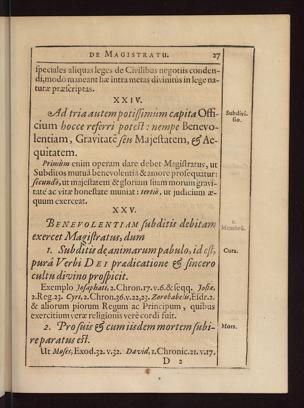 DE MAGISTRATU. 27
speciales aliquas leges de Civilibus negotiis conden-
di, modo maneant hæ intra metas divinitùs in lege na-
turæ præscriptas.
XXIV.
Ad tria autem potissimùm capita Offi-
cium hocce referri potest: nempe Benevo-
lentiam, Gravitatē seu Majestatem, & Æ-
quitatem.
Subdivi-
sio.
Primùm enim operam dare debet Magistratus, ut
Subditos mutuâ benevolentiâ & amore prosequatur:
secundò, ut majestatem & gloriam suam morum gravi-
tate ac vitæ honestate muniat: tertiò, ut judicium æ-
quum exerceat.
XXV.
BENEVOLENTIAM subditis debitam
exercet Magistratus, dum
1.
Membrū.
1. Subditis de animarum pabulo, id est,
purâ Verbi DEI prædicatione & sincero
cultu divino prospicit.
Cura.
Exemplo Josaphati, 2. Chron. 17. v. 6. & seqq. Josiæ,
2. Reg. 23. Cyri, 2. Chron. 36. v. 22, 23. Zorobabelis, Esdr. 2.
& aliorum piorum Regum ac Principum, quibus
exercitium veræ religionis verè cordi fuit.
2. Pro suis & cum iisdem mortem subi-
re paratus est.
Mors.
Ut Moses, Exod. 32. v. 32. David, 1. Chronic. 21. v. 17.
D 2